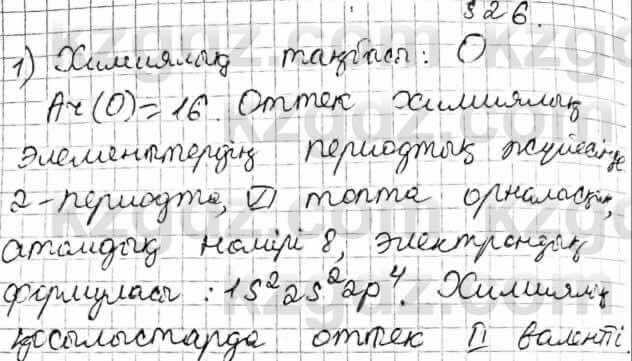 §26.
1) Химиялық таңбасы: O
Ar(O)=16. Оттек химиялық
элементтердің периодтық жүйесінде
2-периодта, VI топта орналасқан,
атомдық нөмірі 8, электрондық
формуласы: 1s²2s²2p⁴. Химиялық
қосылыстарда оттек II валентті